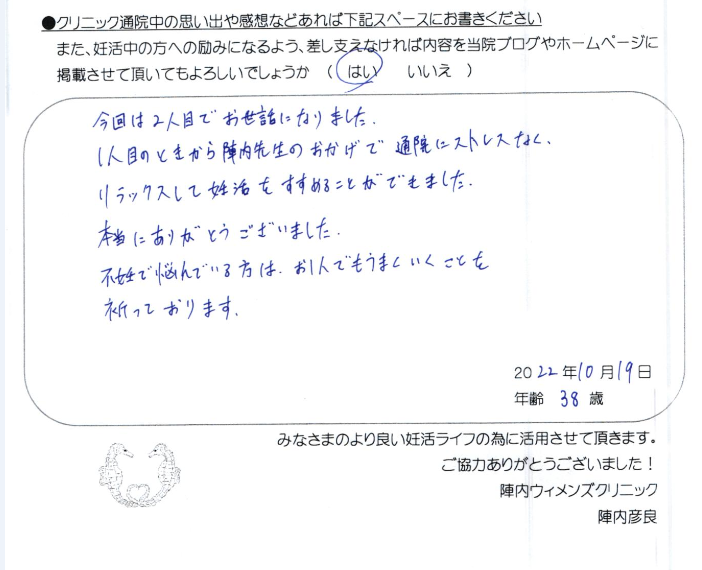 ●クリニック通院中の思い出や感想などあれば下記スペースにお書きください
また、妊活中の方への励みになるよう、差し支えなければ内容を当院ブログやホームページに
掲載させて頂いてもよろしいでしょうか （ はい　いいえ ）
今回は2人目でお世話になりました.
1人目のときから陣内先生のおかげで 通院にストレスなく、
リラックスして妊活をすすめることができました.
本当にありがとうございました.
不妊で悩んでいる方は、お1人でもうまくいくことを
祈っております.
2022年10月19日
年齢 38 歳
みなさまのより良い妊活ライフの為に活用させて頂きます。
ご協力ありがとうございました！
陣内ウィメンズクリニック
陣内彦良